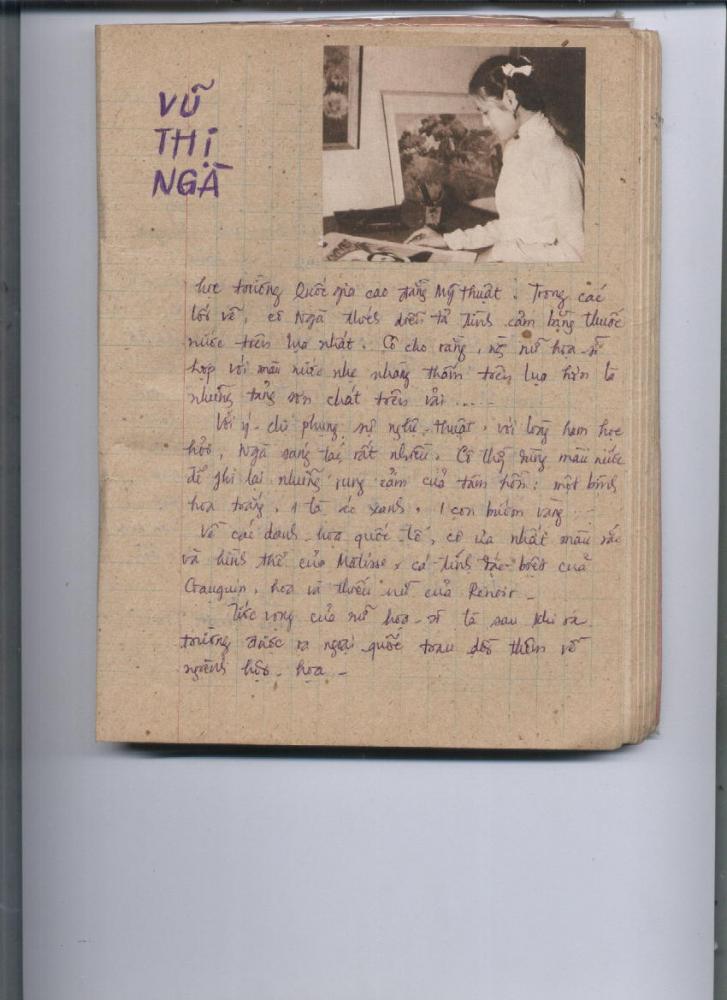 VŨ
THỊ
NGÀ
học trường Quốc gia cao đẳng Mỹ thuật. Trong các
lối vẽ, cô Ngà thích diễn tả tình cảm bằng thuốc
nước trên lụa nhất. Cô cho rằng, nữ họa-sĩ
hợp với màu nước nhẹ nhàng thấm trên lụa hơn là
những tảng sơn chát trên vải ....-
Với ý-chí phụng sự nghệ-thuật, với lòng ham học
hỏi, Ngà sáng tác rất nhiều. Cô thg dùng màu nước
để ghi lại những rung cảm của tâm hồn: một bình
hoa trắng, 1 tà áo xanh, 1 con bướm vàng...-
Về các danh-họa quốc tế, cô ưa nhất màu sắc
và hình thể của Matisse, cá tính đặc-biệt của
Gauguin, hoa và thiếu nữ của Renoir-
Ước vọng của nữ họa-sĩ là sau khi ra
trường được ra ngoại-quốc trau dồi thêm về
ngành hội-họa-